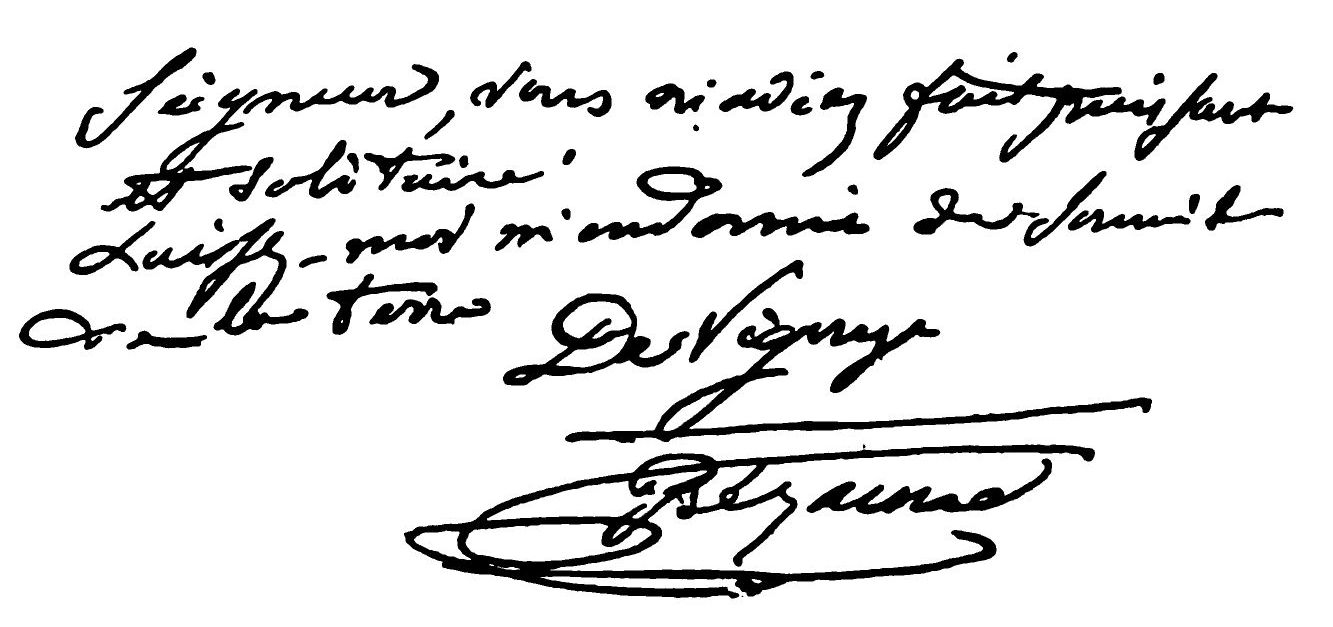 Seigneur, vous m'aviez fait puissant
et solitaire
Laissez-moi m'endormir du sommeil
de la terre
De Vigny